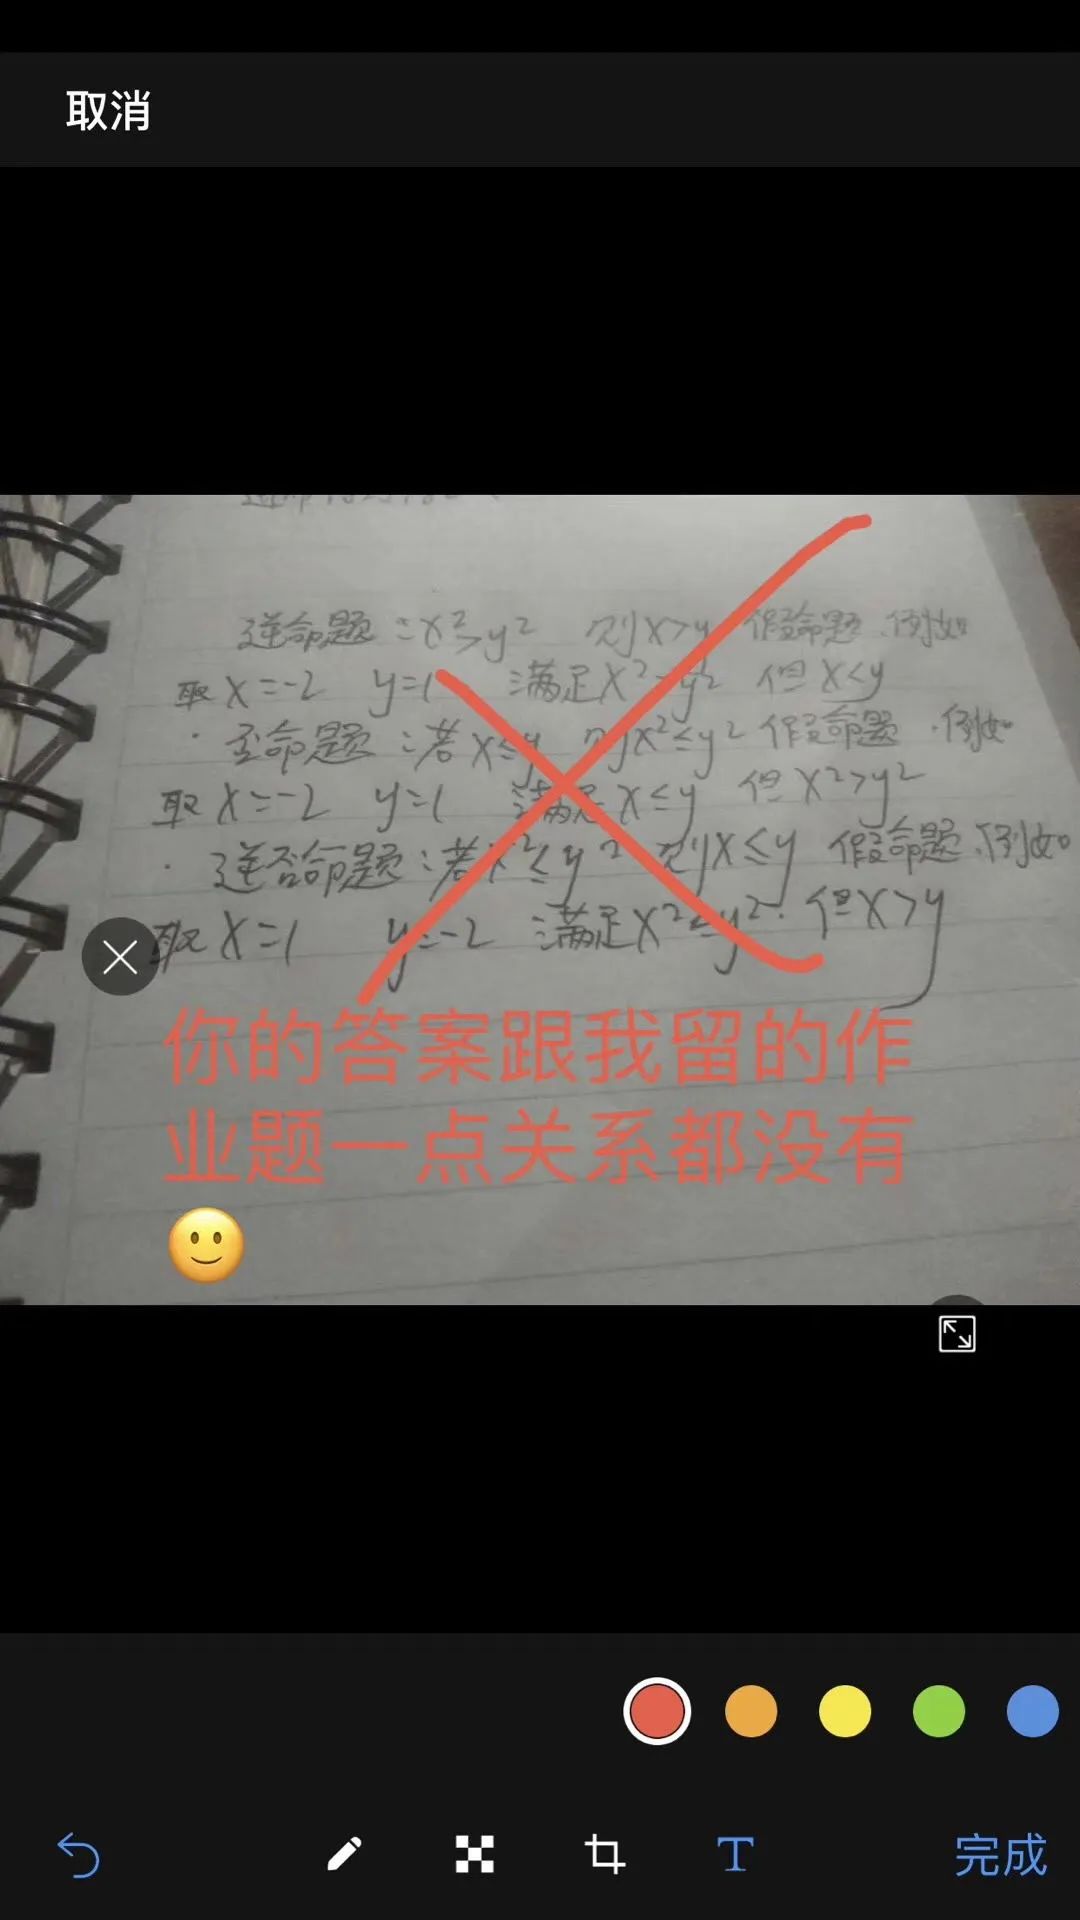 取消
逆命题：x²>y² 则x>y 假命题.例如
取x=-2 y=1 满足x²>y² 但x<y
· 否命题：若x≤y 则x²≤y² 假命题.例如
取x=-2 y=1 满足x≤y 但x²>y²
· 逆否命题：若x²≤y² 则x≤y 假命题.例如
取x=1 y=-2 满足x²≤y². 但x>y
你的答案跟我留的作
业题一点关系都没有
🙂
T 完成